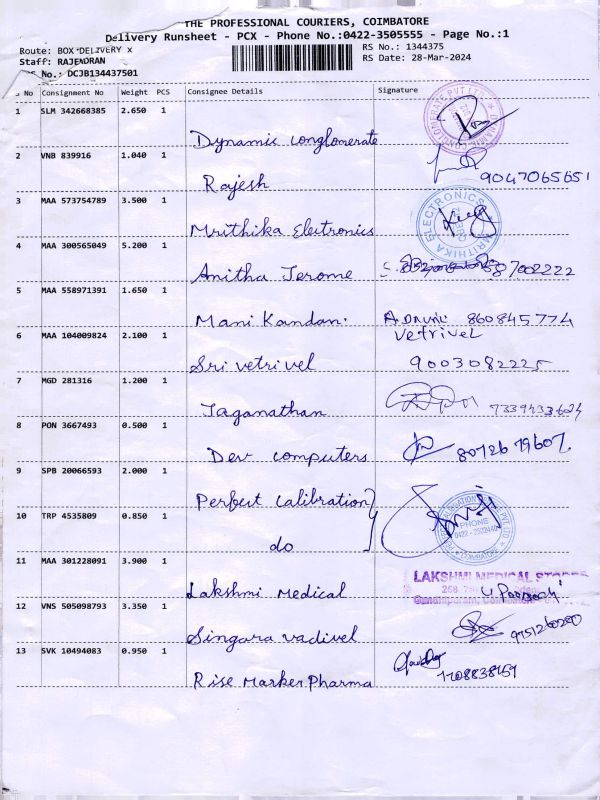 THE PROFESSIONAL COURIERS, COIMBATORE
Delivery Runsheet - PCX - Phone No.:0422-3505555 - Page No.:1
Route: BOX DELIVERY x
RS No.: 1344375
Staff: RAJENDRAN
RS Date: 28-Mar-2024
No.: DCJB134437501
No Consignment No Weight PCS Consignee Details Signature
1 SLM 342668385 2.650 1
Dynamic conglomerate
2 VNB 839916 1.040 1
Rajesh 9047065651
3 MAA 573754789 3.500 1
Mrithika Electronics
MRITHIKA ELECTRONICS
4 MAA 300565049 5.200 1
Anitha Jerome
5 MAA 558971391 1.650 1
Mani Kandan. 860845774
6 MAA 104009824 2.100 1 Vetrivel
Sri vetrivel 9003082225
7 MGD 281316 1.200 1
Jaganathan
8 PON 3667493 0.500 1
Dev computers
9 SPB 20066593 2.000 1
Perfect Calibration
10 TRP 4535809 0.850 1
do
PHONE
11 MAA 301228091 3.900 1
LAKSHMI MEDICAL STORES
Lakshmi Medical
12 VNS 505098793 3.350 1
Singara vadivel
13 SVK 10494083 0.950 1
Rise Marker Pharma